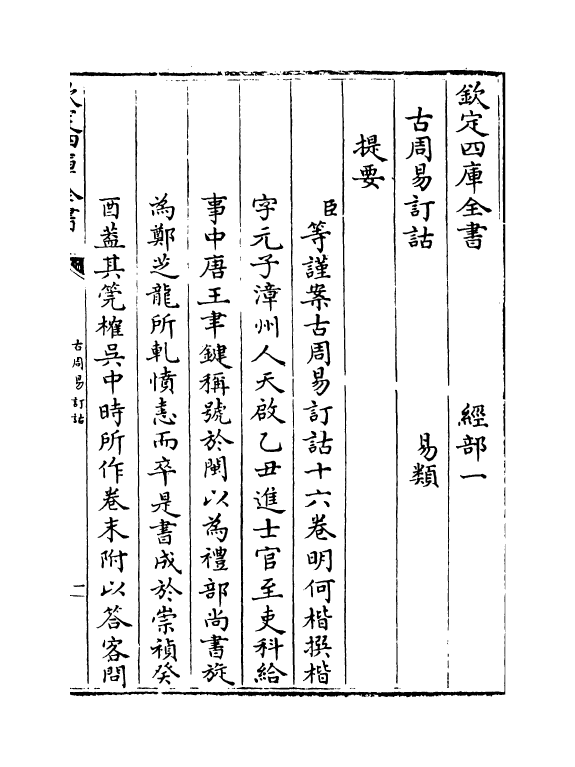 欽定四庫全書　　　　經部一
古周易訂詁　　　　易類
提要
臣等謹案古周易訂詁十六卷明何楷撰楷
字元子漳州人天啟乙丑進士官至吏科給
事中唐王聿鍵稱號於閩以為禮部尚書旋
為鄭芝龍所軋憤恚而卒是書成於崇禎癸
酉葢其筦榷吳中時所作卷末附以答客問
欽定四庫全書
古周易訂詁
二